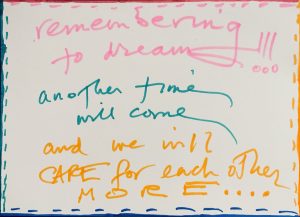 remembering
to dream!!!
another time
will come
and we will
CARE for each other
MORE....